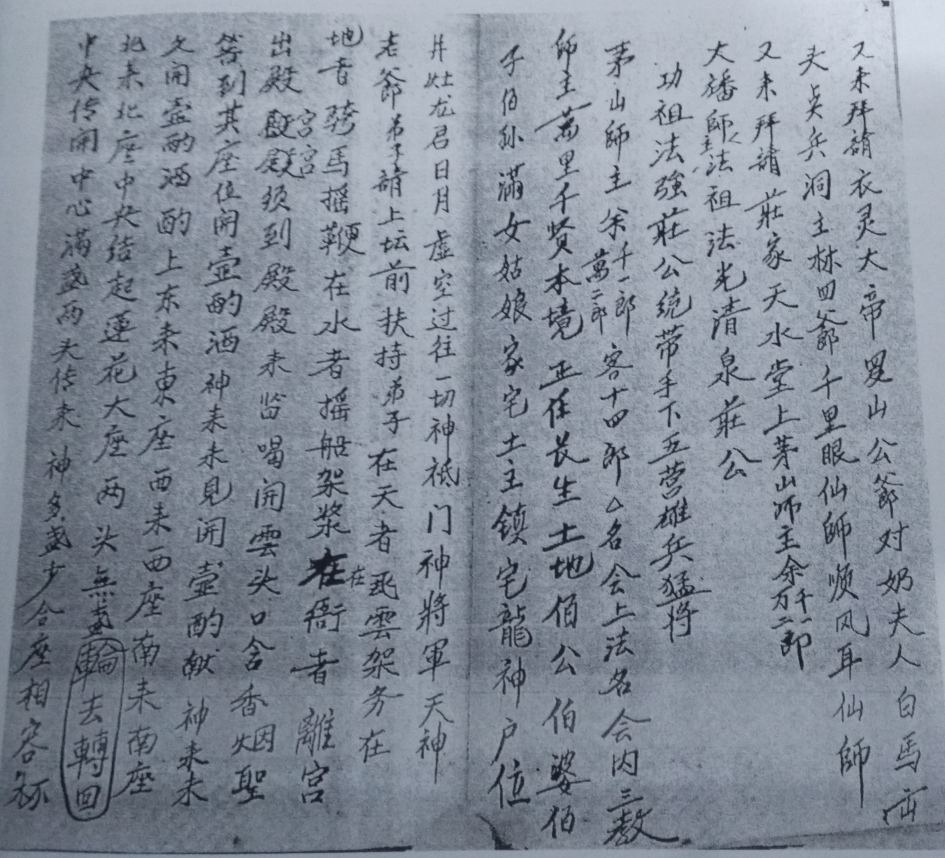 又来拜請衣灵大帝罗山公爺对奶夫人白馬
夫貞兵洞主林四爺千里眼仙師順风耳仙師
又来拜請莊家天水堂上茅山师主余千一郎万二郎
大潘師主法祖法光清泉莊公
功祖法強莊公统带手下五营雄兵猛将
茅山師主余千一郎萬二郎客十四郎厶名会上法名会内三教
師主萬里千贤本境正任长生土地伯公伯婆伯
子伯孙滿女姑娘家宅土主鎮宅龍神户位
井灶龙君日月虚空过往一切神祗门神將軍天神
老爺弟子請上坛前扶持弟子在天者飛雲架务在
地者骑馬摇鞭在水者摇船架漿在在衙者離宫
出殿殿宫宫殿须到殿殿来
喝開雲头口含香烟聖
答到其座位開壶酌洒神来未見開壶酌献神来未
文開壶酌洒酌上东来東座西来西座南来南座
北来北座中央结起蓮花大座两头無盏輪去轉回
中央传開中心滿盏两头传来神多盏少合座相容